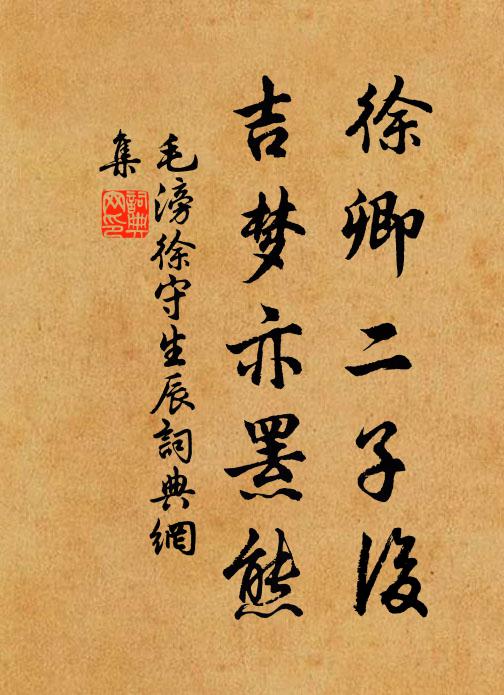 徐卿二子後
吉梦亦罴熊
毛滂徐守生辰詞典網
集
詞典
网印